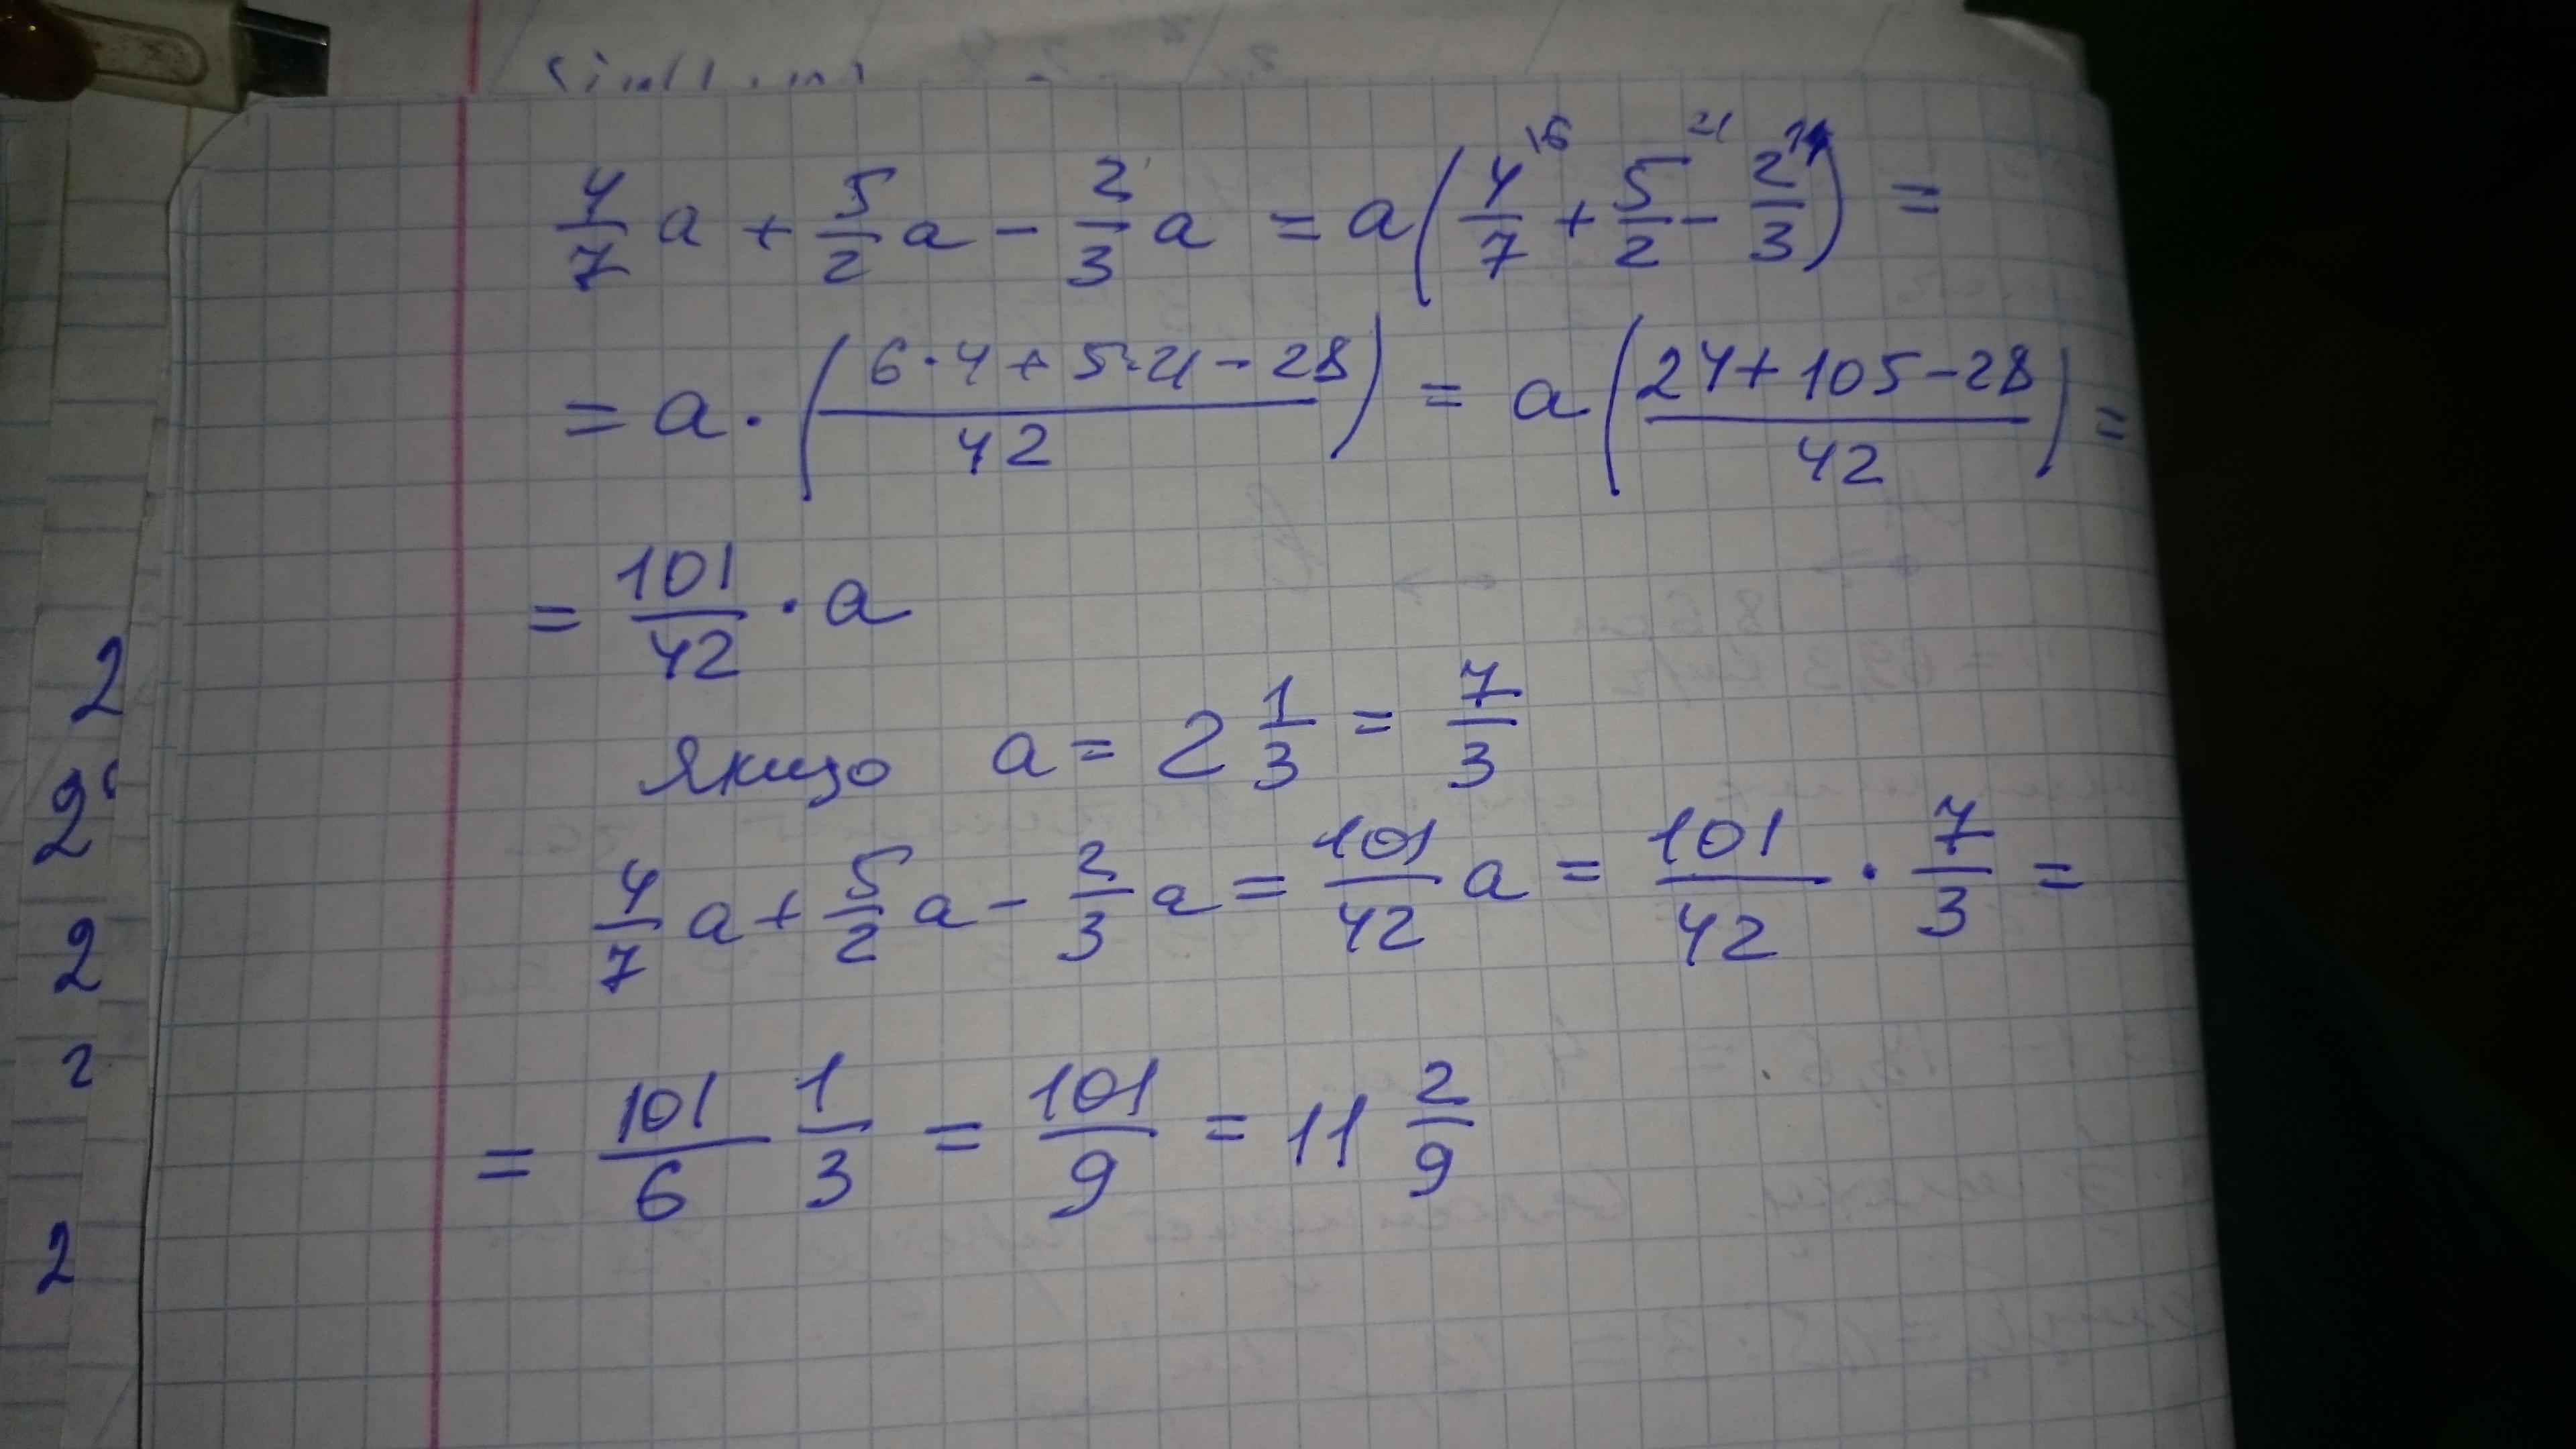 4/7 a + 5/2 a - 2/3 a = a(4/7 + 5/2 - 2/3) =
= a · (6·4 + 5·21 - 28 / 42) = a(24 + 105 - 28 / 42) =
= 101/42 · a
якщо a = 2 1/3 = 7/3
4/7 a + 5/2 a - 2/3 a = 101/42 a = 101/42 · 7/3 =
= 101/6 1/3 = 101/9 = 11 2/9
2
2
2
2
2